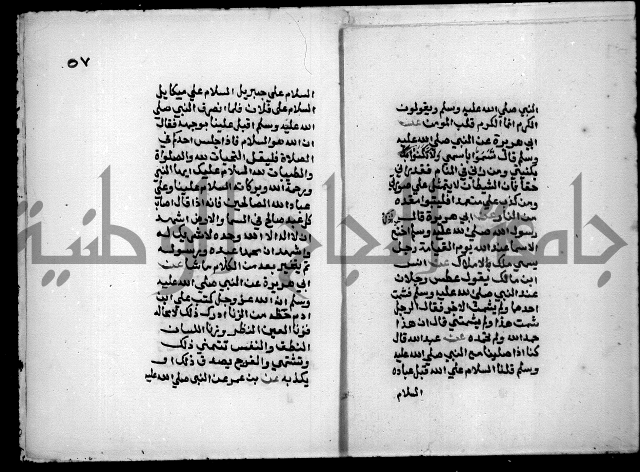 النبي صلى الله عليه وسلم ويقولون
الكرم انما الكرم قلب المومن عن
ابي هريرة عن النبي صلى الله عليه
وسلم قال تسموا باسمي ولا تكتنوا
بكنيتي ومن راني في المنام فقد راني
حقا فان الشيطان لا يتمثل علي صورتي
ومن كذب علي متعمدا فليتبوا مقعده
من النار عن ابي هريرة قال
رسول الله صلى الله عليه وسلم اخنع
الاسما عند الله يوم القيامة رجل
يسمي ملك الاملاك عن انس
ابن مالك يقول عطس رجلان
عند النبي صلى الله عليه وسلم فشمت
احدهما ولم يشمت الاخر فقال الرجل
شمت هذا ولم تشمتني قال ان هذا
حمد الله ولم تحمده عن عبدالله قال
كنا اذا صلينا مع النبي صلى الله عليه
وسلم قلنا السلام علي الله قبل عباده
السلام
٥٧
السلام على جبريل السلام علي ميكايل
السلام على فلان فلما انصرف النبي صلى
الله عليه وسلم اقبل علينا بوجهه فقال
ان الله هو السلام فاذا جلس احدكم في
الصلاة فليقل التحيات لله والصلوات
والطيبات لله السلام عليك ايها النبي
ورحمة الله وبركاته السلام علينا وعلي
عباد الله الصالحين فانه اذا قال اصاب
كل عبد صالح في السما والارض اشهد
ان لا اله الا الله وحده لا شريك له
واشهد ان محمدا عبده ورسوله
ثم يتخير بعد من الكلام ما شا عن
ابي هريرة عن النبي صلى الله عليه
وسلم ان الله عز وجل كتب علي ابن
ادم حظه من الزنا ادرك ذلك لا محاله
فزنا العين النظر وزنا اللسان
النطق والنفس تتمني ذلك
وتشتهي والفرج يصدق ذلك او
يكذبه عن بن عمر عن النبي صلى الله عليه
جامعة النجاح الوطنية